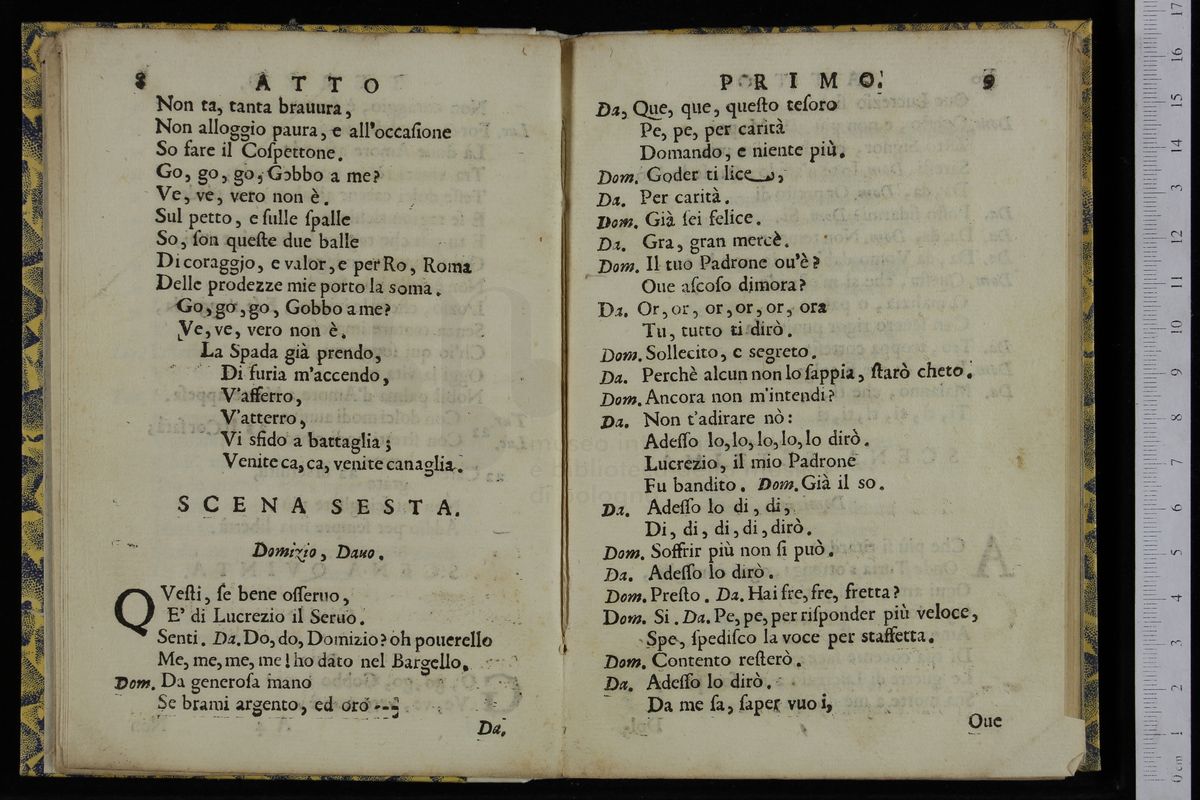 8 ATTO
Non ta, tanta brauura,
Non alloggio paura, e all'occaſione
So fare il Coſpettone.
Go, go, go, Gobbo a me?
Ve, ve, vero non è.
Sul petto, e ſulle ſpalle
So, ſon queſte due balle
Di coraggio, e valor, e per Ro, Roma
Delle prodezze mie porto la soma.
Go, go, go, Gobbo a me?
Ve, ve, vero non è.
La Spada già prendo,
Di furia m'accendo,
V'afferro,
V'atterro,
Vi sfido a battaglia;
Venite ca, ca, venite canaglia.
SCENA SESTA.
Domizio, Dauo.
QVeſti, ſe bene oſſeruo,
E' di Lucrezio il Seruo.
Senti. Da. Do, do, Domizio? oh pouerello
Me, me, me, me! ho dato nel Bargello.
Dom. Da generoſa mano
Se brami argento, ed oro ---;
Da.
PRIMO. 9
Da, Que, que, queſto teſoro
Pe, pe, per carità
Domando, e niente più.
Dom. Goder ti lice,
Da. Per carità.
Dom. Già ſei felice.
Da. Gra, gran mercè.
Dom. Il tuo Padrone ou'è?
Oue aſcoſo dimora?
Da. Or, or, or, or, or, ora
Tu, tutto ti dirò.
Dom. Sollecito, e segreto.
Da. Perchè alcun non lo ſappia, ſtarò cheto.
Dom. Ancora non m'intendi?
Da. Non t'adirare nò:
Adeſſo lo, lo, lo, lo, lo dirò.
Lucrezio, il mio Padrone
Fu bandito. Dom. Già il so.
Da. Adeſſo lo di, di,
Di, di, di, di, dirò.
Dom. Soffrir più non ſi può.
Da. Adeſſo lo dirò.
Dom. Preſto. Da. Hai fre, fre, fretta?
Dom. Si. Da. Pe, pe, per riſponder più veloce,
Spe, ſpediſco la voce per staffetta.
Dom. Contento reſterò.
Da. Adeſſo lo dirò.
Da me ſa, ſaper vuo i,
Oue